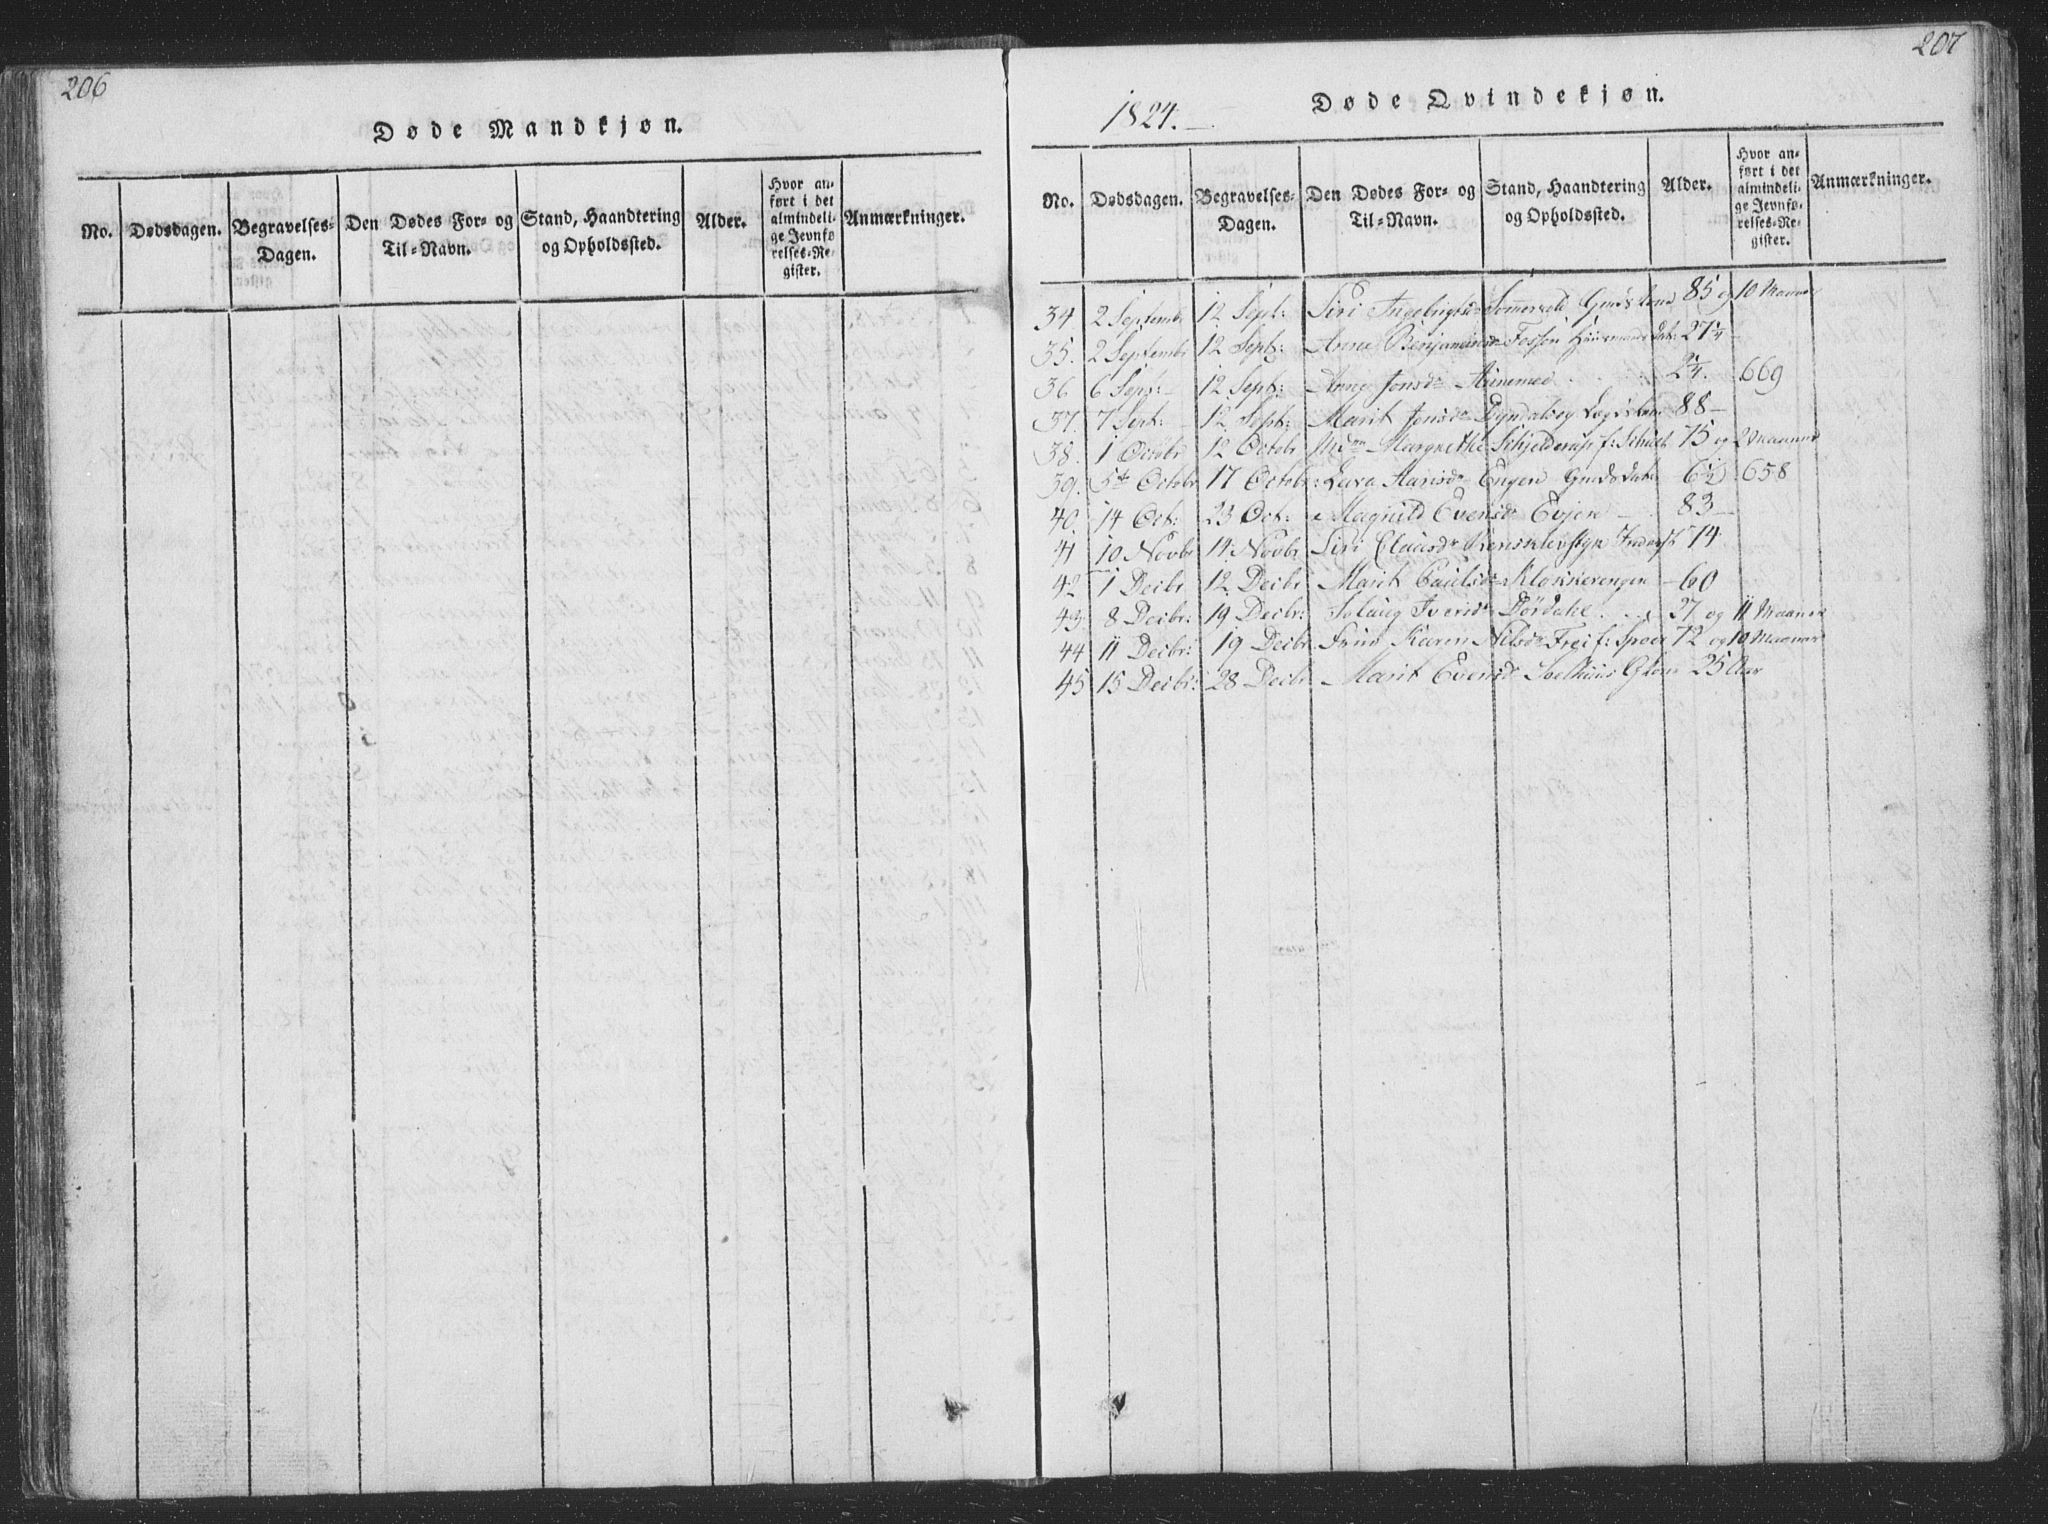 206
Døde Mandkjøn.
No. Dødsdagen. Begravelses-Dagen. Den Dødes For- og Til-Navn. Stand, Haandtering og Opholdssted. Alder. Hvor anført i det almindelige Jevnførelses-Register. Anmærkninger.
207
1824.
Døde Qvindekjøn.
No. Dødsdagen. Begravelses-Dagen. Den Dødes For- og Til-Navn. Stand, Haandtering og Opholdssted. Alder. Hvor anført i det almindelige Jevnførelses-Register. Anmærkninger.
34 2 Septembr 12 Sept: Siri Ingebrigtsd 85 og 10 Maaner
35. 2 Septembr 12 Sept: Anne Benjaminsd Fossen Huusmands Dat: 27¼
36 6 Sept: 12 Sept: Anne Jonsd Aunemoe 2¼. 669
37. 7 Sept: 12 Sept: Marit Jonsd Lægdslem 88
38. 1 Octobr 12 Octobr Margrethe Schjelderup f: Schult 75 og 2 Maaner
39. 5te Octobr 17 Octobr: Hansd Engen Gmds Dat: 6½ 658
40. 14 Oct: 23 Oct: Magnild Evensd Evjen 83
41 10 Novbr 14 Novbr Siri Claasd 74
42 1 Decbr 12 Decbr Marit Paulsd Klokkerengen 60
43 8 Decbr: 19 Decbr: Solaug Iversd 27 og 11 Maaner
44 11 Decbr: 19 Decbr Frue Karen Nilsd f: 72 og 10 Maaner
45 15 Decbr: 28 Decbr Marit Evensd 25 Aar